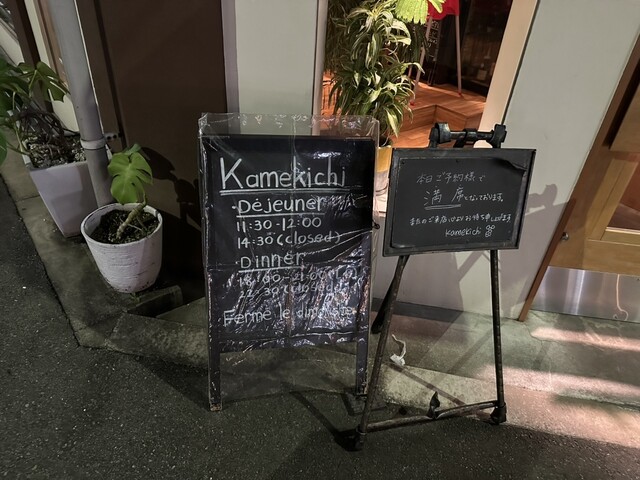 Kamekichi
・Déjeuner
11:30-12:00
14:30 (closed)
・Dinner
18:00-21:00
22:30 (closed)
Fermé le dimanche
本日ご予約様で
満席となっております。
またのご来店心よりお待ち申し上げます
Kamekichi